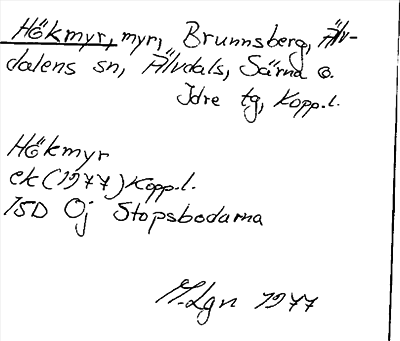 Hökmyr, myr, Brunnsberg, Älv-
dalens sn, Älvdals, Särna o.
Idre tg, Kopp.l.
Hökmyr
ek (1977) Kopp.l.
15D Öj Stopsbodarna
M.Lgn 1977